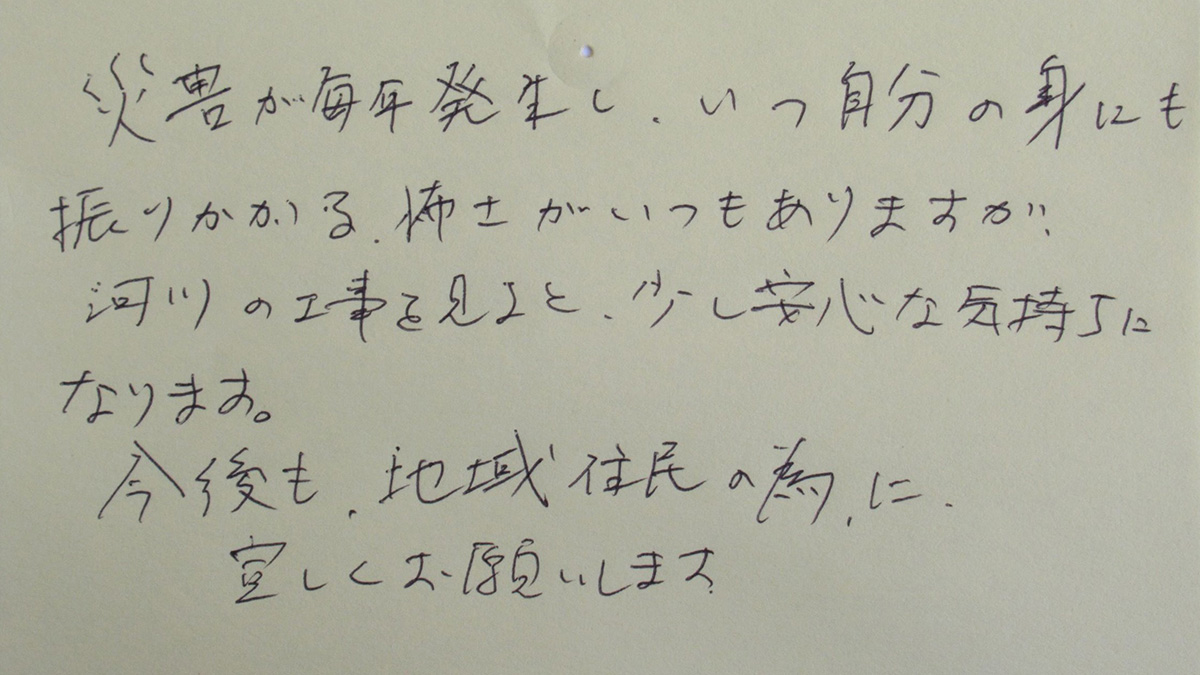 災害が毎年発生し、いつ自分の身にも
振りかかる、怖さがいつもありますが、
河川の工事を見ると、少し安心な気持ちに
なります。
今後も、地域住民の為、に、
宜しくお願いします